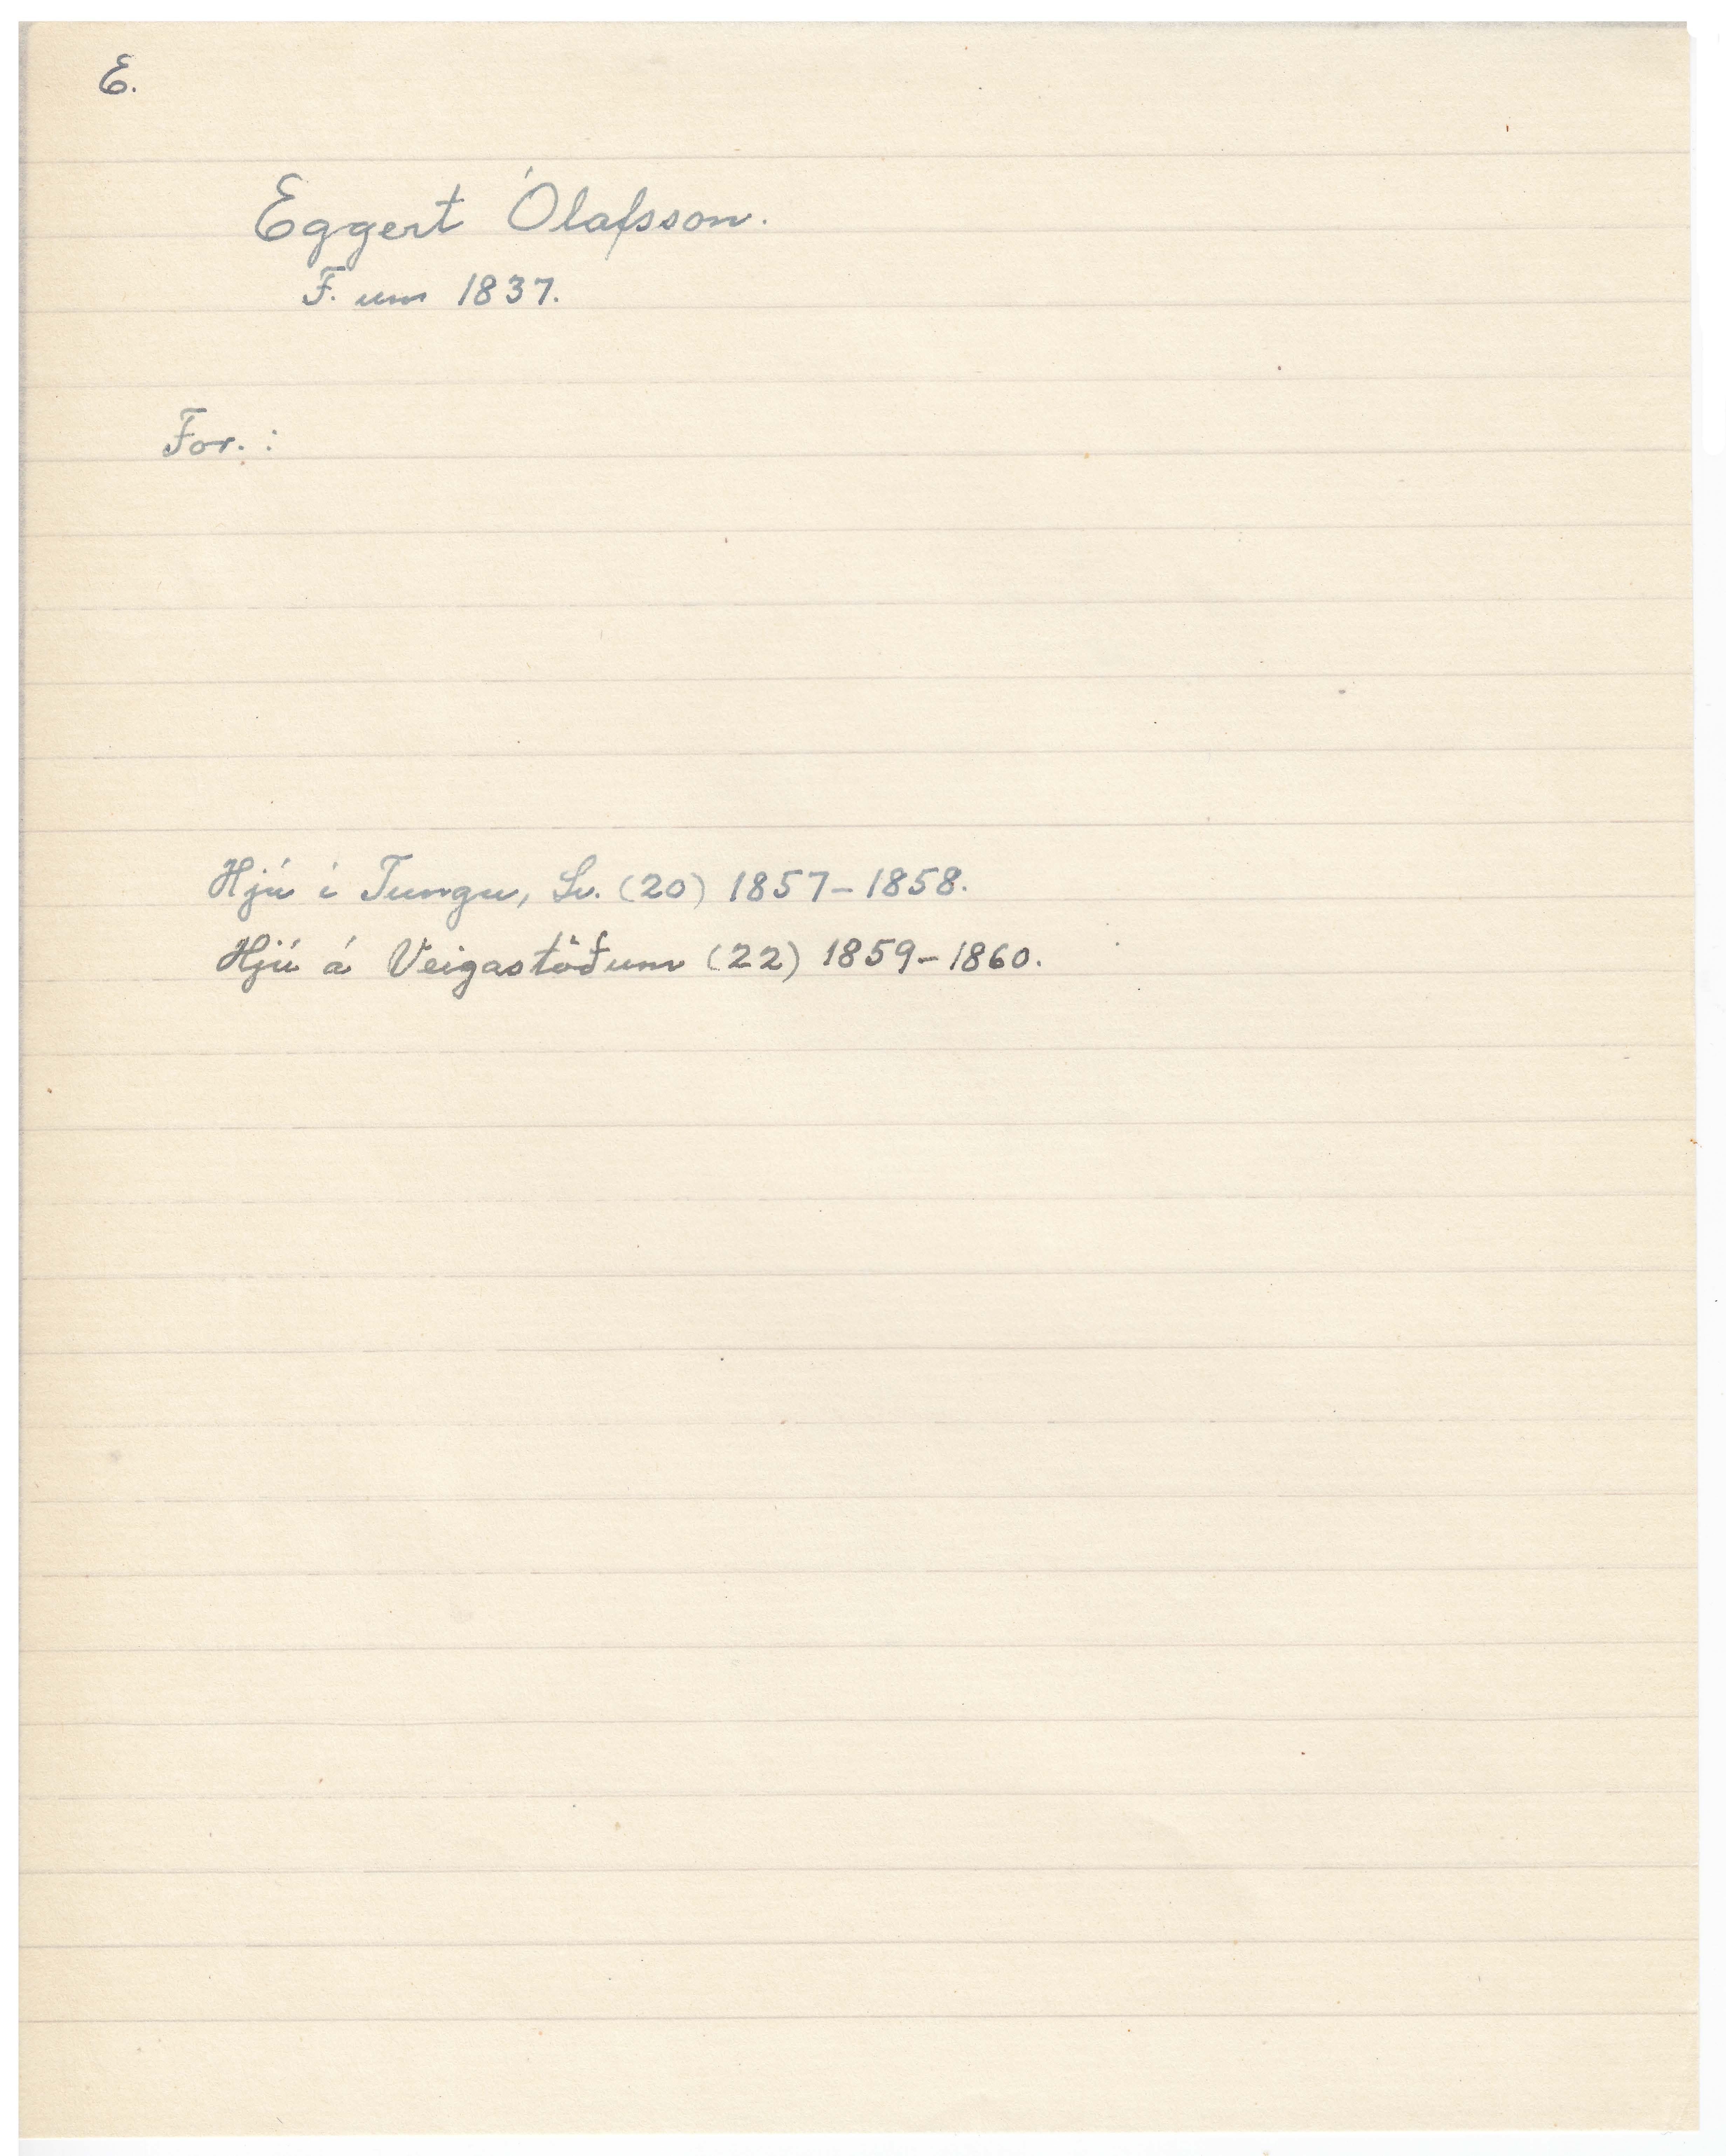 E.
Eggert Ólafsson.
F. um 1837.
For. :
Hjú í Tungu, Sv. (20) 1857-1858.
Hjú á Veigastöðum (22) 1859-1860.